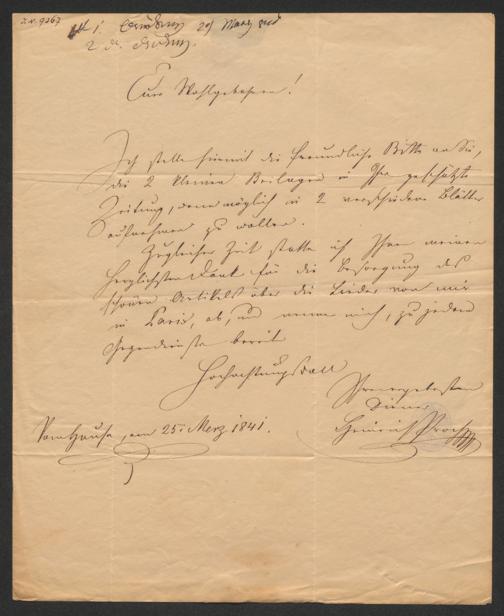 I.N. 9267
29 März
Euer Wohlgeboren!
Ich stelle hiemit die freundliche Bitte an Sie,
die 2 kleinen Beilagen in Ihre geschätzte
Zeitung, wenn möglich in 2 verschiedene Blätter
aufnehmen zu wollen.
Zugleicher Zeit statte ich Ihnen meinen
herzlichsten Dank für die Besorgung des
schönen Artikels über die Lieder von mir
in Paris, ab, und nenne mich, zu jedem
Gegendienste bereit
Hochachtungsvoll
Diener
Heinrich Proch
Vom Hause, am 25. März 1841.